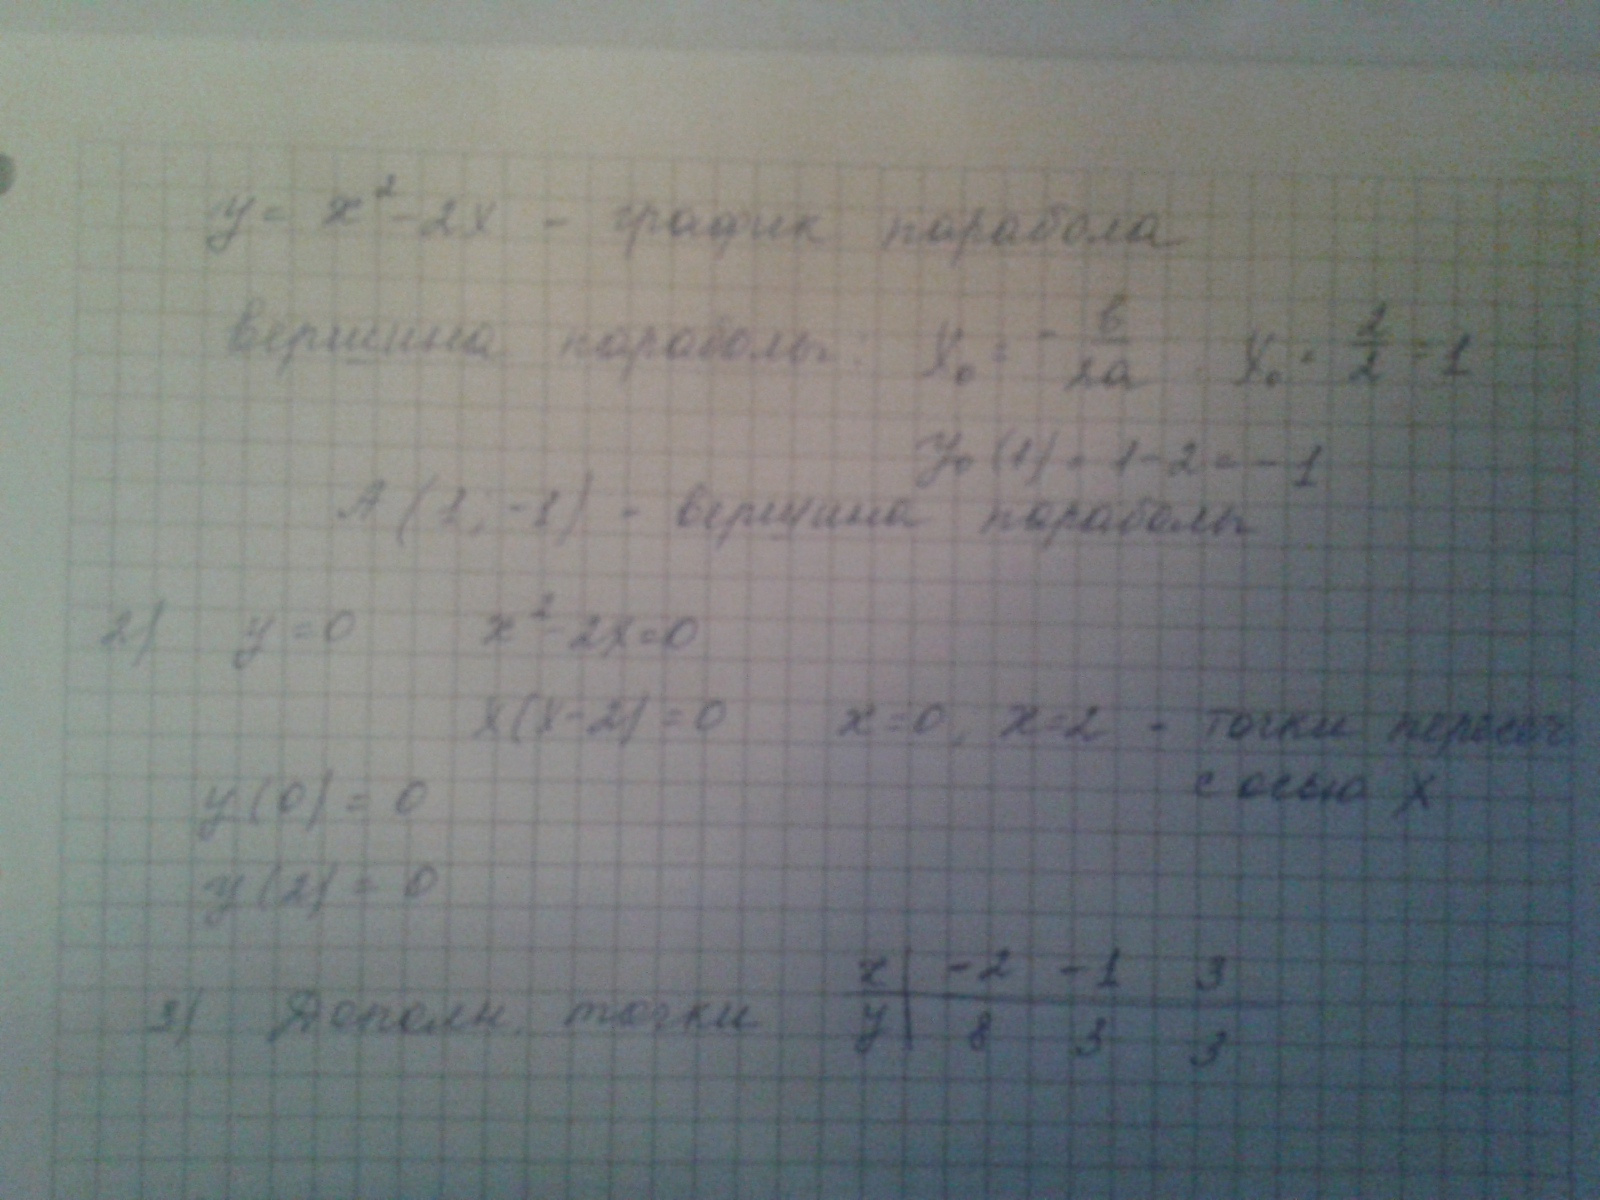 y = x² - 2x - график парабола
вершина параболы: x₀ = - в/2a x₀ = 2/2 = 1
y₀(1) = 1 - 2 = -1
A (1; -1) - вершина параболы
2) y = 0 x² - 2x = 0
x(x-2) = 0 x = 0, x = 2 - точки пересеч
с осью x
y(0) = 0
y(2) = 0
3) Дополн. точки x | -2 -1 3
y | 8 3 3